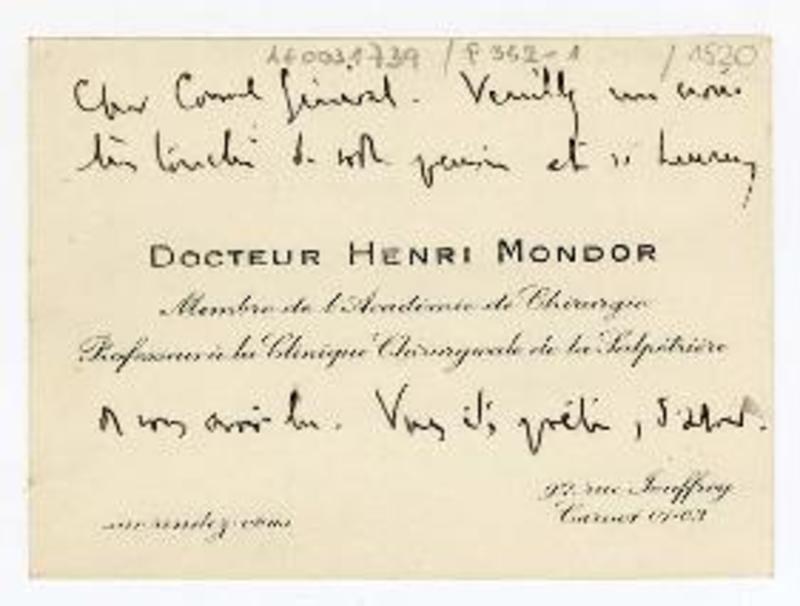 LF00331739 / P 352-1 / 1520
Cher Consul Général. Veuillez me croire
très touché de votre pensée et si heureux
DOCTEUR HENRI MONDOR
Membre de l'Académie de Chirurgie
Professeur à la Clinique Chirurgicale de la Salpétrière
de vous avoir lu. Vous êtes poète, d'abord.
sur rendez-vous
97, rue Jouffroy
Carnot 01-03